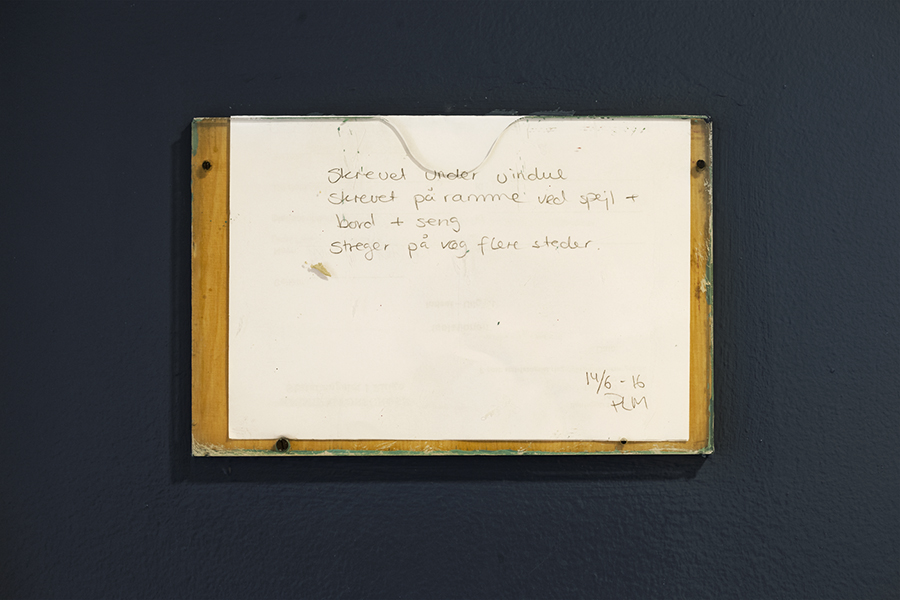 Skrevet under vindue
Skrevet på ramme ved spejl +
bord + seng
Streger på væg, flere steder.
14/6 - 16
PLM